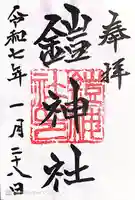 奉拝
鎧神社
令和七年 一月二十八日